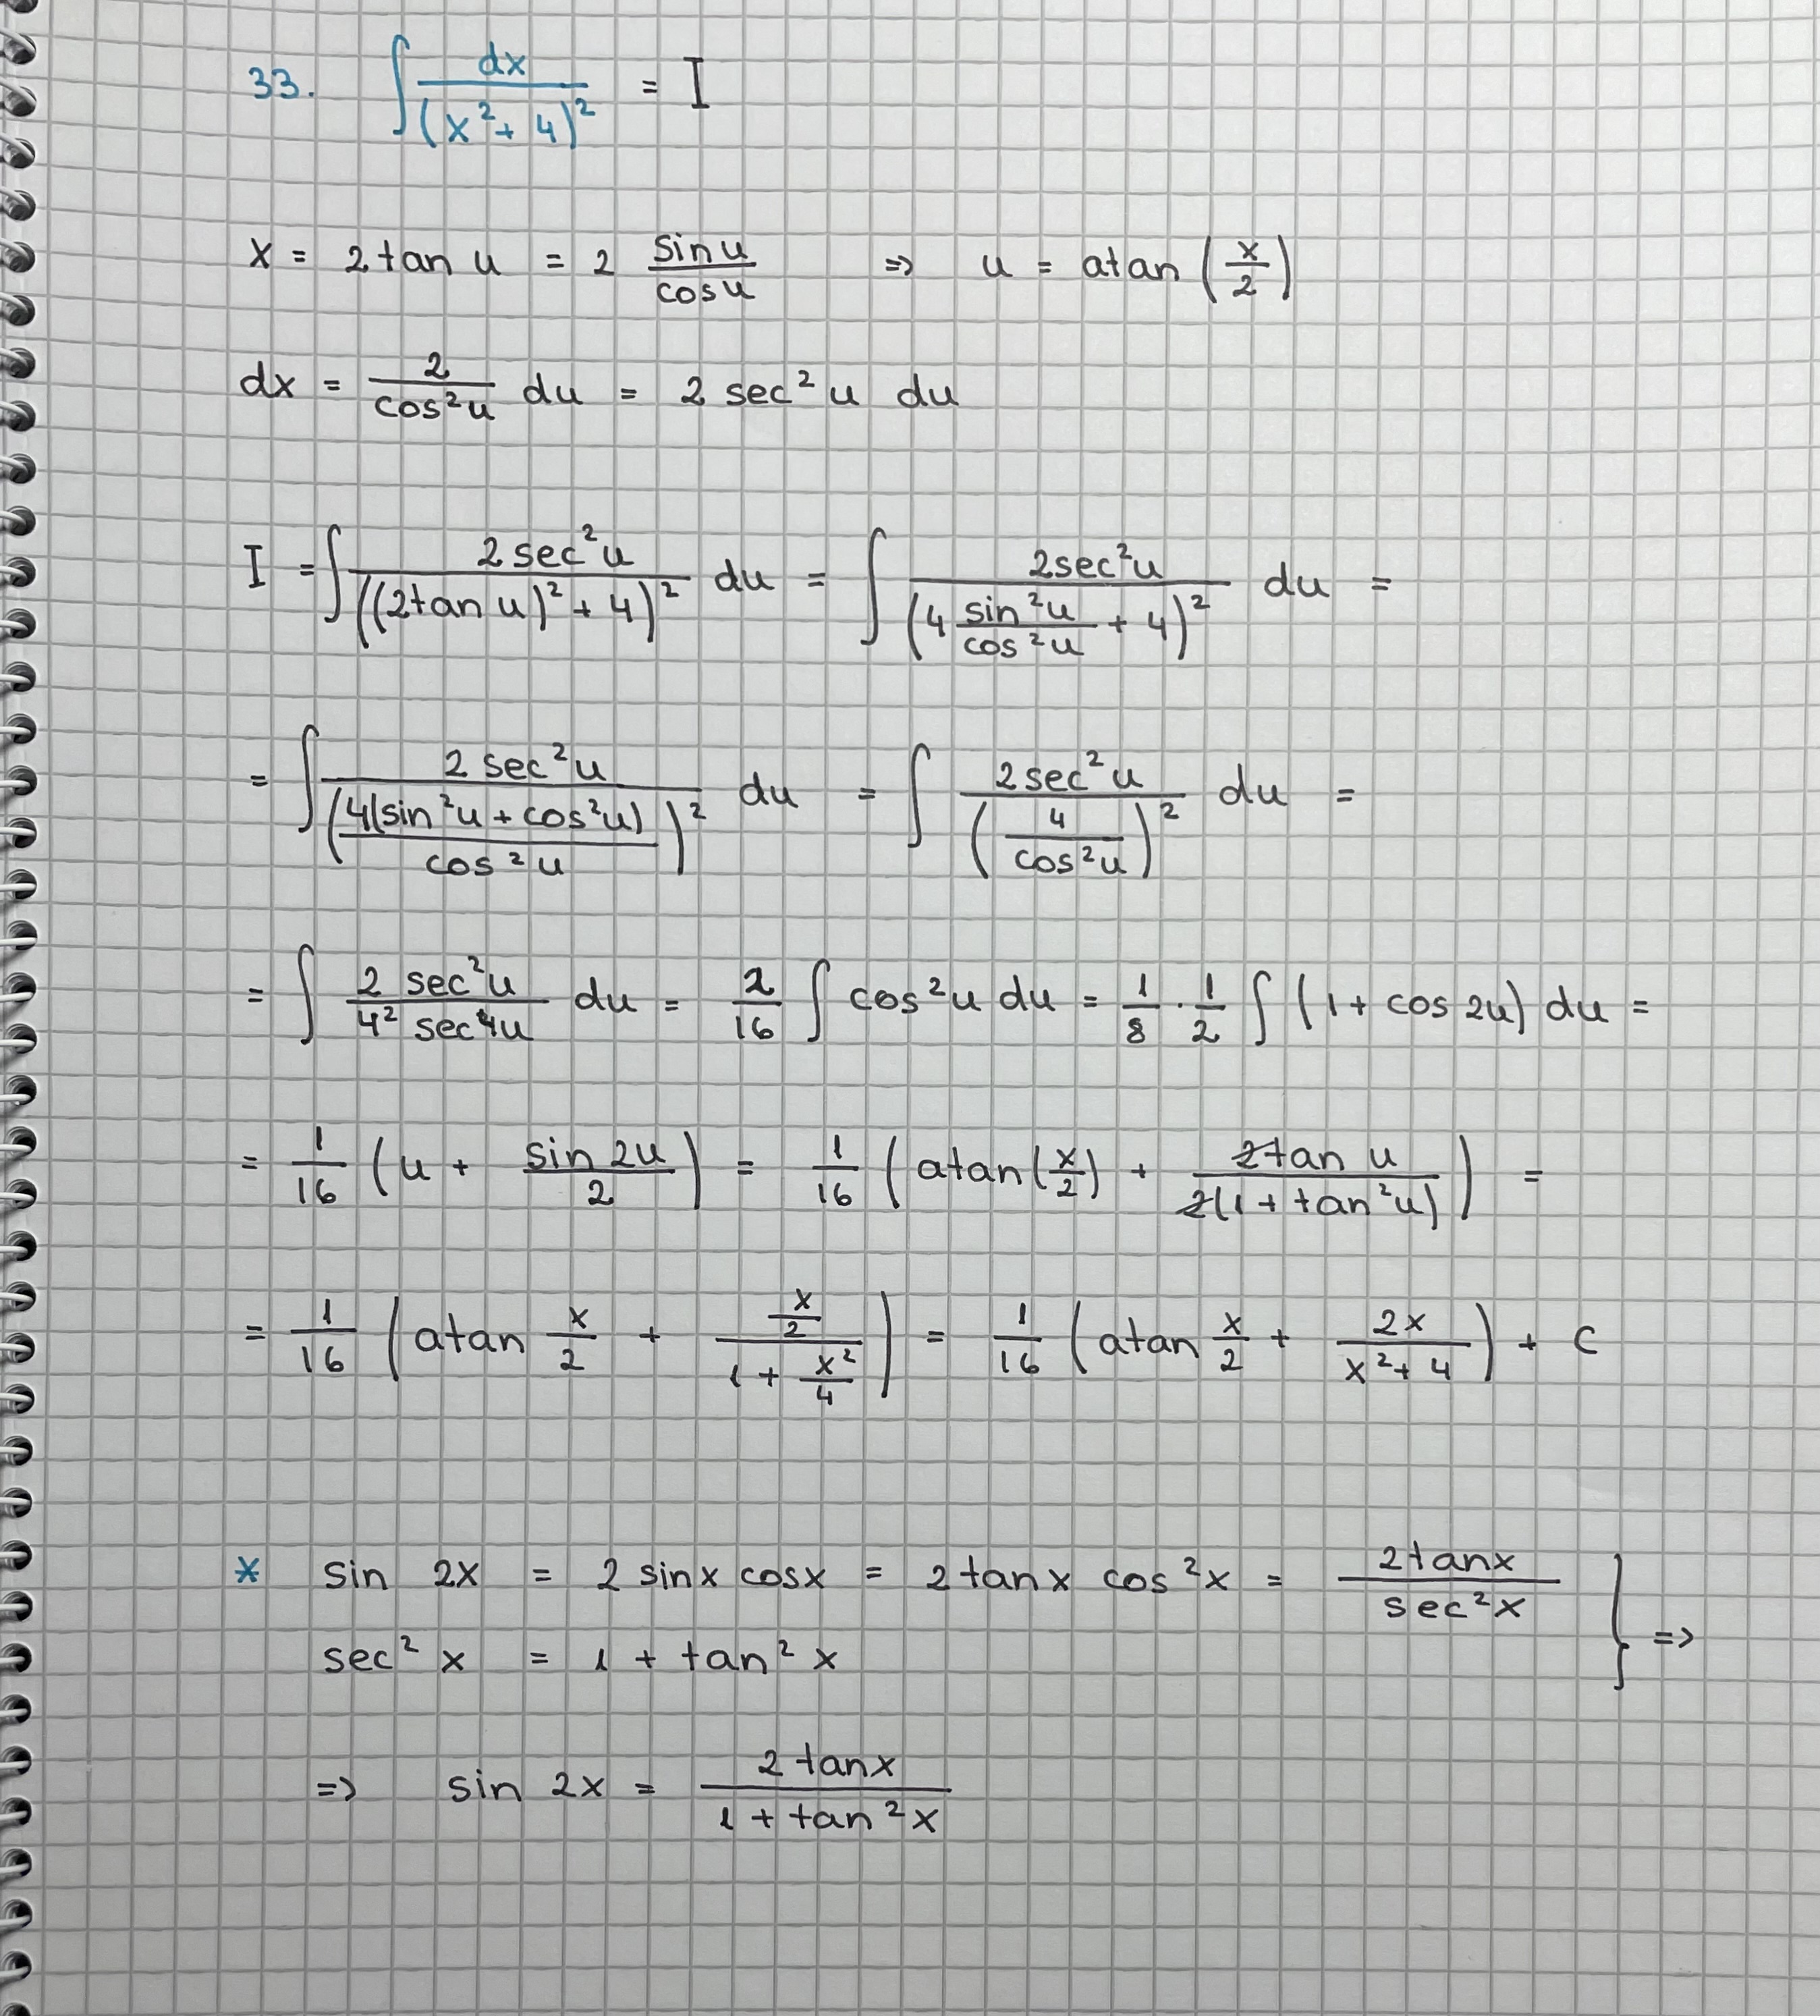 33. ∫ dx/(x²+4)² = I
x = 2tan u = 2 sin u/cos u ⇒ u = atan(x/2)
dx = 2/cos²u du = 2 sec²u du
I = ∫ 2sec²u/((2tan u)²+4)² du = ∫ 2sec²u/(4 sin²u/cos²u + 4)² du =
= ∫ 2sec²u/(4(sin²u+cos²u)/cos²u)² du = ∫ 2sec²u/(4/cos²u)² du =
= ∫ 2 sec²u/(4² sec⁴u) du = 2/16 ∫ cos²u du = 1/8 · 1/2 ∫ (1+ cos 2u) du =
= 1/16 (u + sin 2u/2) = 1/16 (atan(x/2) + 2tan u/(2(1+tan²u))) =
= 1/16 (atan x/2 + (x/2)/(1+x²/4)) = 1/16 (atan x/2 + 2x/(x²+4)) + C
* sin 2x = 2 sinx cosx = 2tanx cos²x = 2tanx/sec²x } =>
sec²x = 1 + tan²x
=> sin 2x = 2 tanx/(1+tan²x)